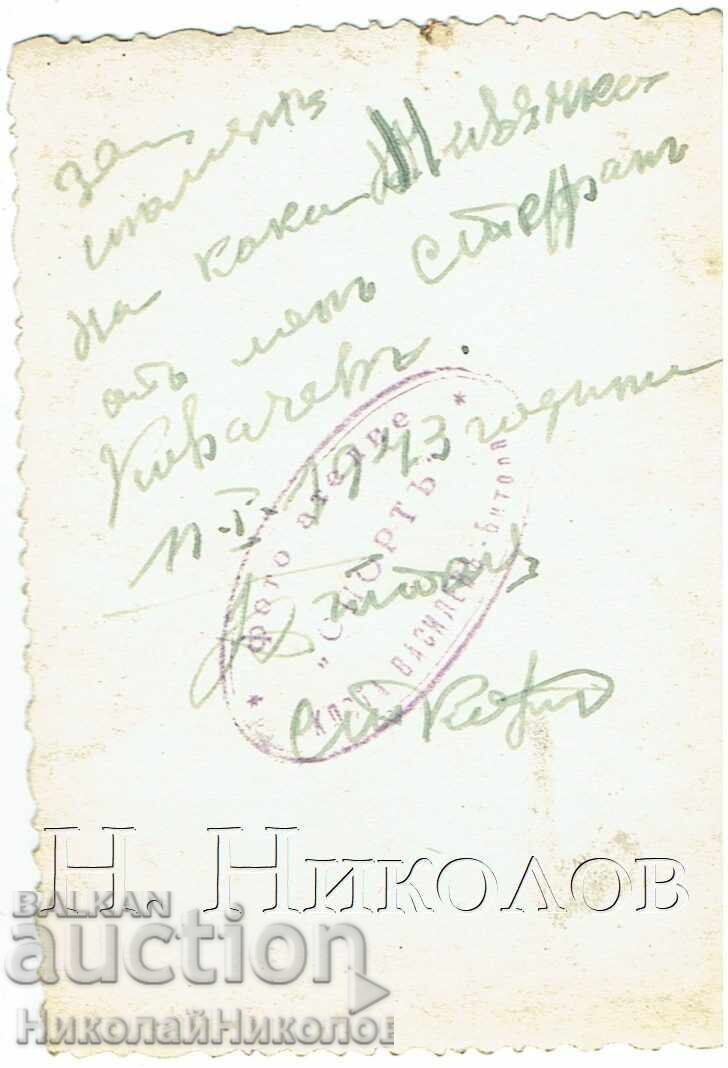 за
спомень
на кака Живѣнка
отъ менъ Стефанъ
Ковачевъ.
11-I-1943 година
Битоля
Фото ателие
"СПОРТЪ"
ВАСИЛЕВЪ Битоля
Н. Николов
BALKAN
auction
НиколайНиколов